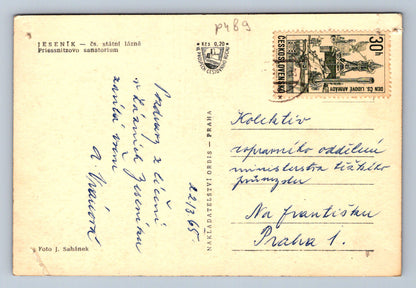 P489
JESENÍK — čs. státní lázně
Priessnitzovo sanatorium
Kčs 0,20
30h
ČESKOSLOVENSKO
DEN ČS. LIDOVÉ ARMÁDY
Pozdravy z léčení
v lázních Jeseníku
zasílá vám
A. Vránová
22/3 65
NAKLADATELSTVÍ ORBIS — PRAHA
Kolektiv
dopravního oddělení
ministerstva těžkého
průmyslu
Na Františku
Praha 1.
Foto J. Sahánek